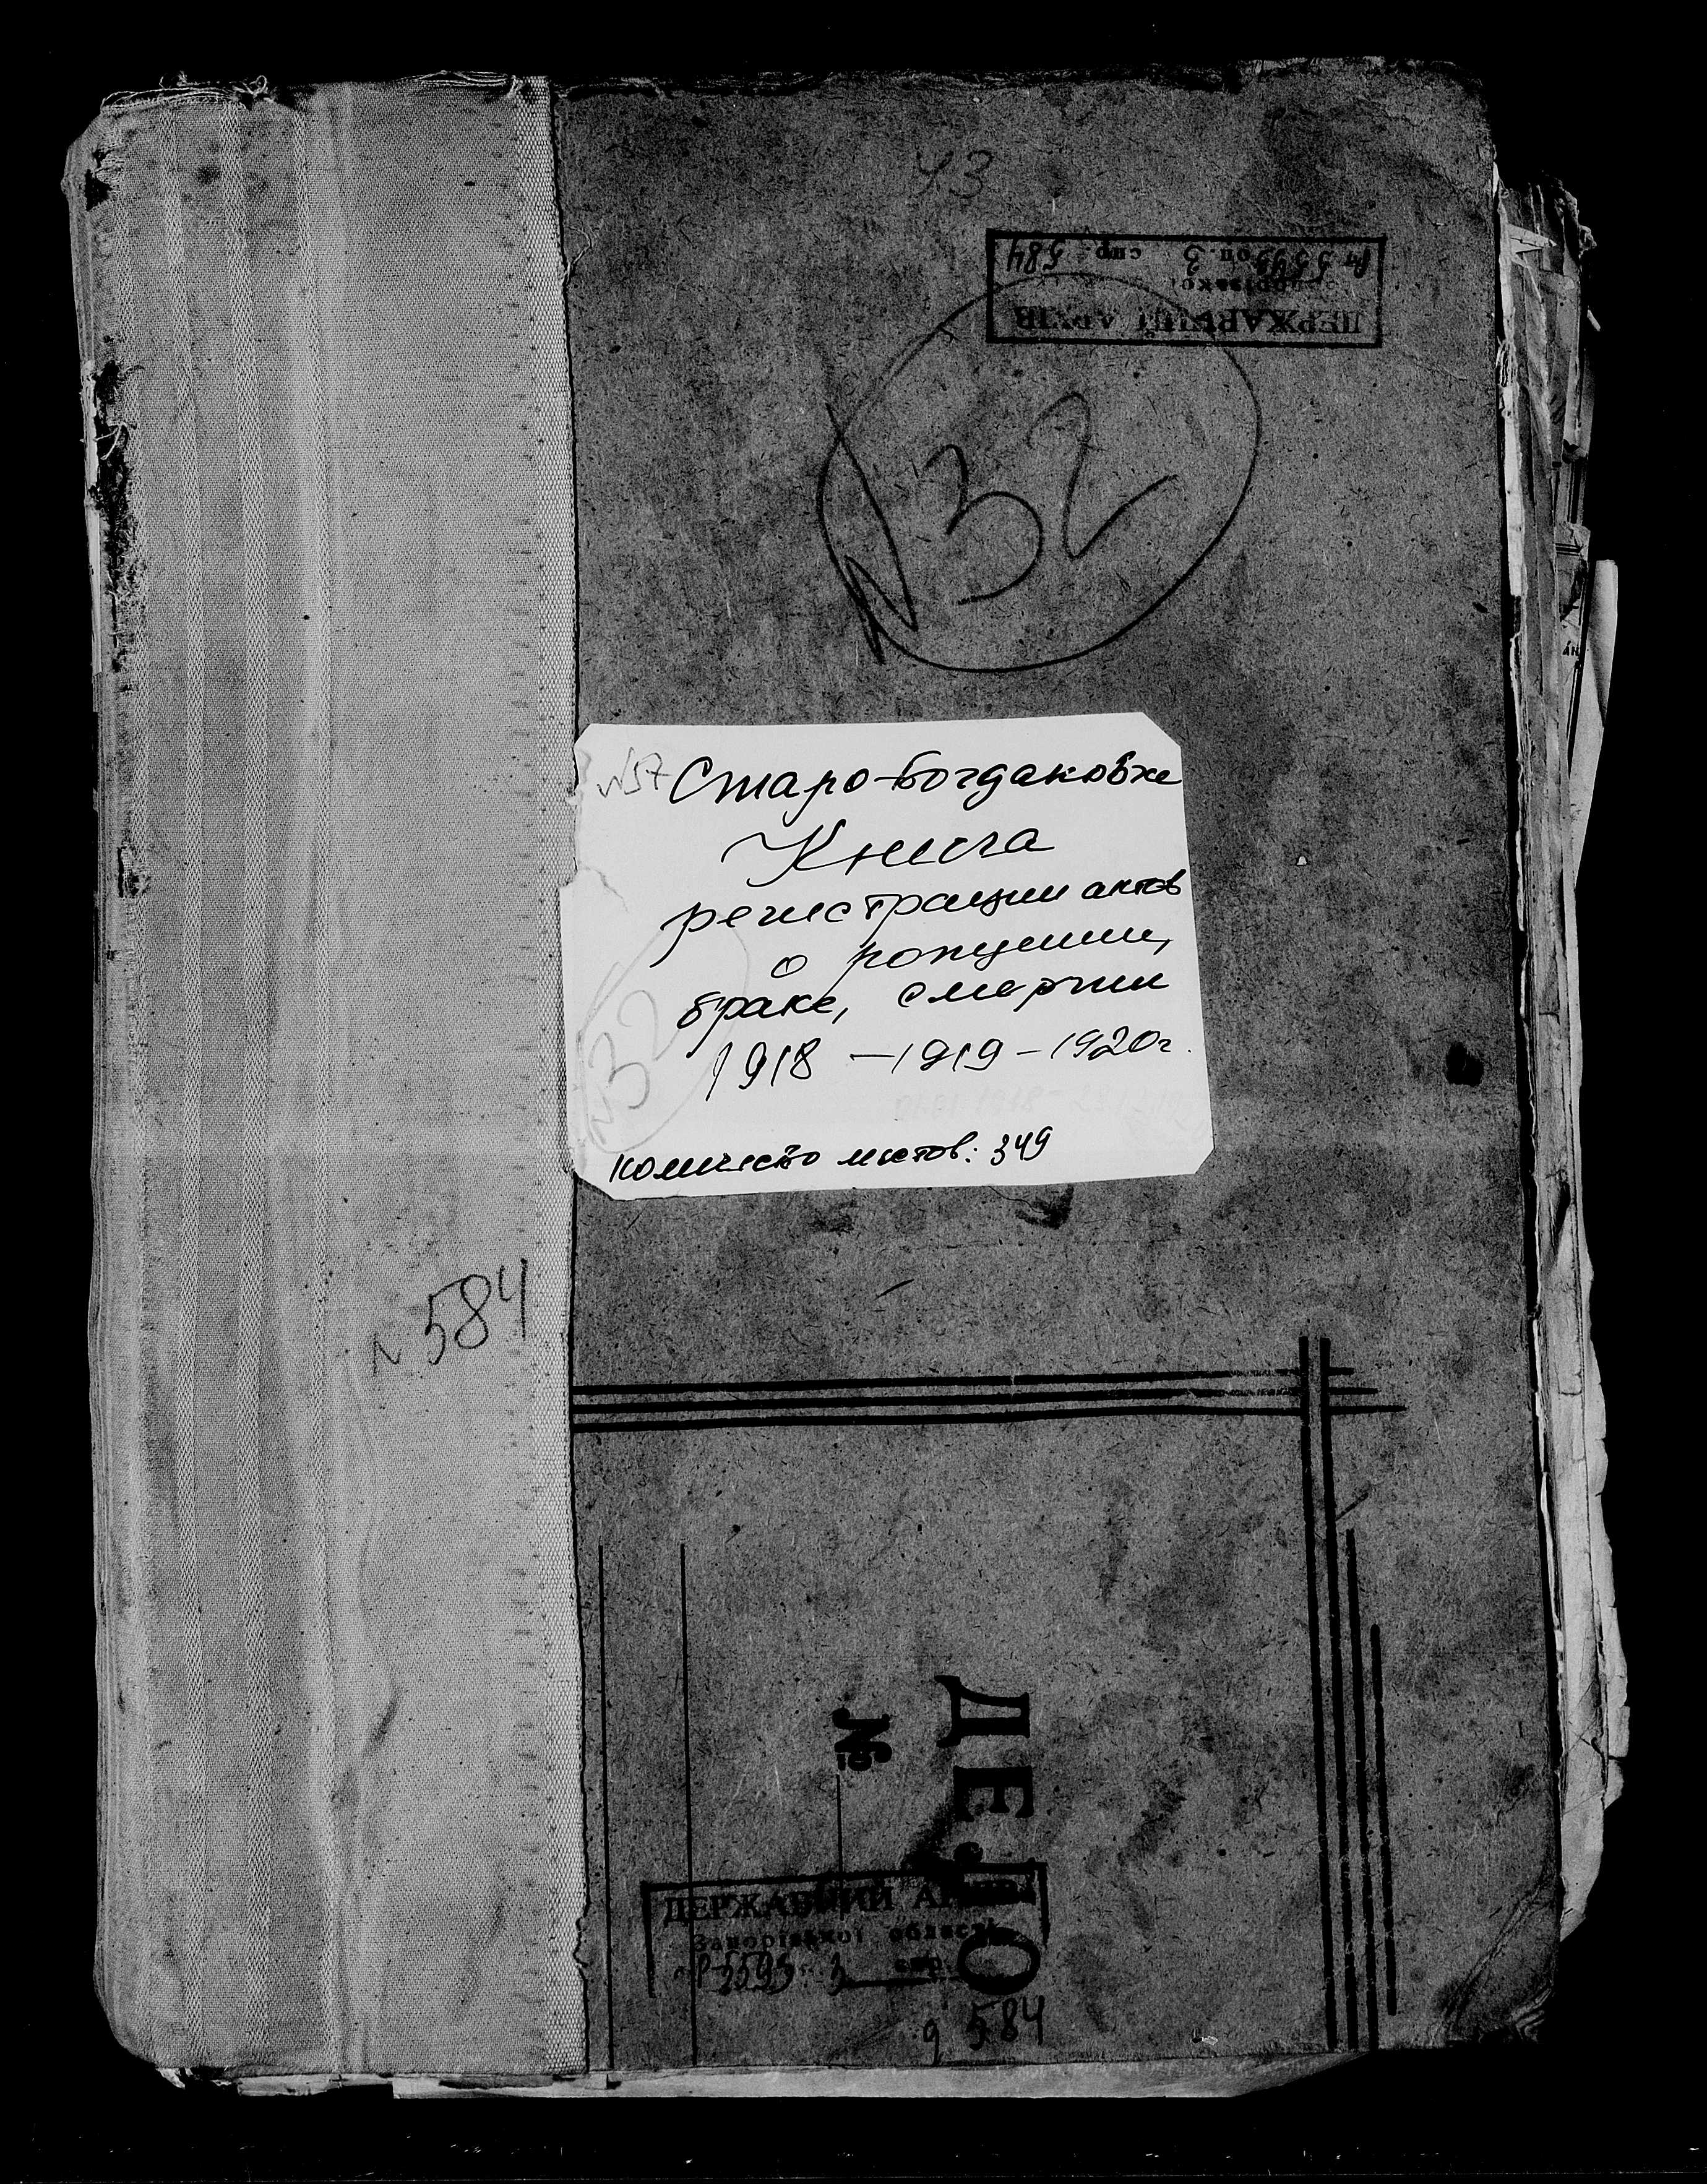 43
ДЕРЖАВНИЙ АРХІВ
Р-5593 оп. 3 спр. 584
N 32
N57 Старо-Богдановка
Книга
регистрации актов
о рождении,
браке, смерти
1918 – 1919 – 1920г.
N32
количество листов: 349
N 584
ДЕЛО
№
ДЕРЖАВНИЙ АРХІВ
Запорізької області
Р-5593 3 спр.
584